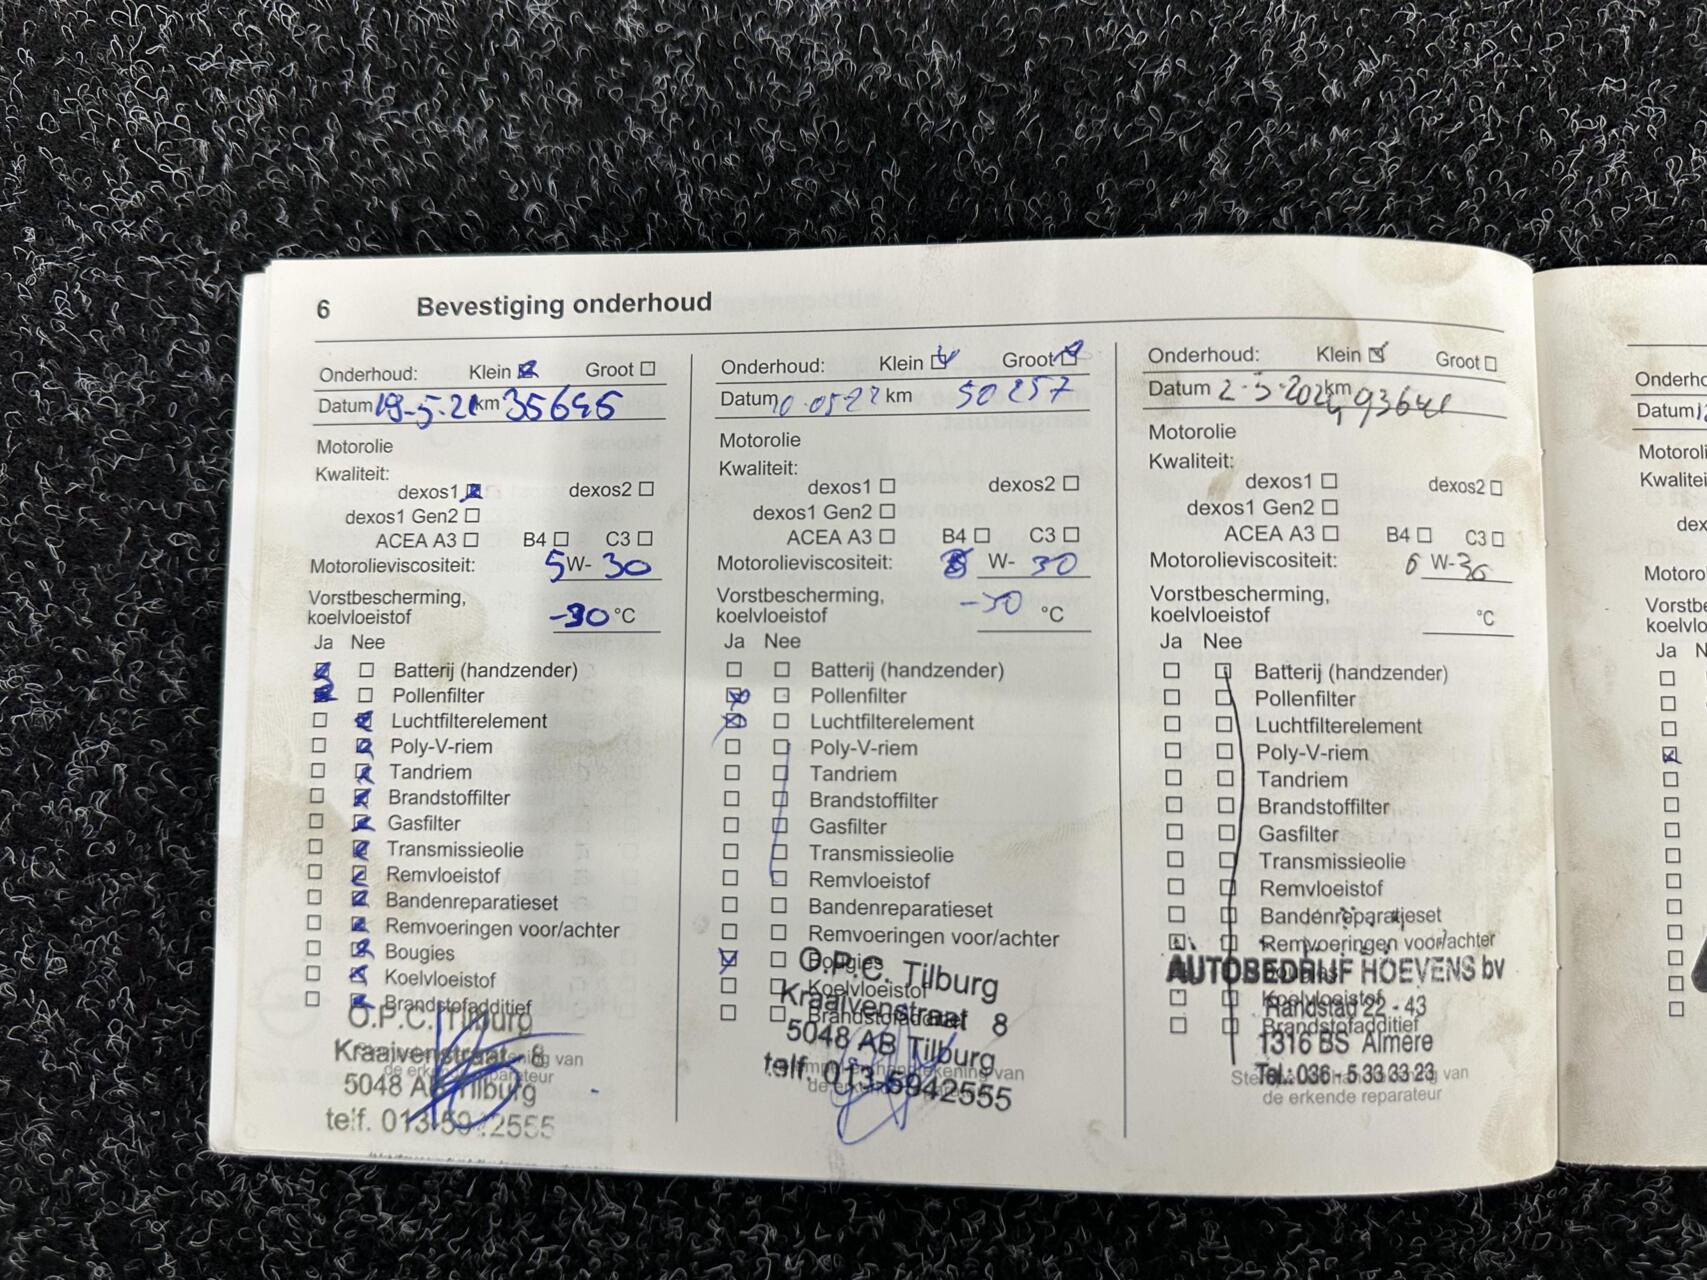 6 Bevestiging onderhoud
Onderhoud: Klein Groot
Datum 19-5-21 km 35646
Motorolie
Kwaliteit:
dexos1 dexos2
dexos1 Gen2
ACEA A3 B4 C3
Motorolieviscositeit: 5 W- 30
Vorstbescherming,
koelvloeistof -30 °C
Ja Nee
Batterij (handzender)
Pollenfilter
Luchtfilterelement
Poly-V-riem
Tandriem
Brandstoffilter
Gasfilter
Transmissieolie
Remvloeistof
Bandenreparatieset
Remvoeringen voor/achter
Bougies
Koelvloeistof
Brandstofadditief
O.P.C. Tilburg
Kraaivenstraat 8
5048 AB Tilburg
telf. 013-5942555
de erkende reparateur
Onderhoud: Klein Groot
Datum 10-05-22 km 50257
Motorolie
Kwaliteit:
dexos1 dexos2
dexos1 Gen2
ACEA A3 B4 C3
Motorolieviscositeit: W- 30
Vorstbescherming,
koelvloeistof -30 °C
Ja Nee
Batterij (handzender)
Pollenfilter
Luchtfilterelement
Poly-V-riem
Tandriem
Brandstoffilter
Gasfilter
Transmissieolie
Remvloeistof
Bandenreparatieset
Remvoeringen voor/achter
Bougies
Koelvloeistof
Brandstofadditief
O.P.C. Tilburg
Kraaivenstraat 8
5048 AB Tilburg
telf. 013-5942555
de erkende reparateur
Onderhoud: Klein Groot
Datum 2-5-2024 km 93641
Motorolie
Kwaliteit:
dexos1 dexos2
dexos1 Gen2
ACEA A3 B4 C3
Motorolieviscositeit: 5 W-30
Vorstbescherming,
koelvloeistof °C
Ja Nee
Batterij (handzender)
Pollenfilter
Luchtfilterelement
Poly-V-riem
Tandriem
Brandstoffilter
Gasfilter
Transmissieolie
Remvloeistof
Bandenreparatieset
Remvoeringen voor/achter
Koelvloeistof
Brandstofadditief
AUTOBEDRIJF HOEVENS bv
Randstad 22 - 43
1316 BS Almere
Tel.: 036 - 5 33 33 23
de erkende reparateur
Onderho
Datum
Motoroli
Kwalitei
dex
Motoro
Vorstbe
koelvlo
Ja N